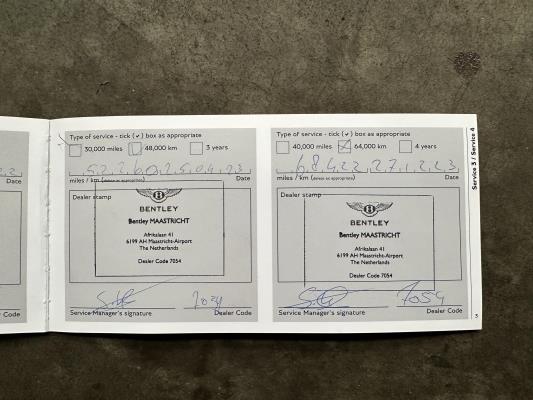 Type of service - tick (✓) box as appropriate
30,000 miles 48,000 km 3 years
52260 250423
miles / km (delete as appropriate) Date
Dealer stamp
B
BENTLEY
Bentley MAASTRICHT
Afrikalaan 41
6199 AH Maastricht-Airport
The Netherlands
Dealer Code 7054
7054
Service Manager's signature Dealer Code
Type of service - tick (✓) box as appropriate
40,000 miles 64,000 km 4 years
68422 271223
miles / km (delete as appropriate) Date
Dealer stamp
B
BENTLEY
Bentley MAASTRICHT
Afrikalaan 41
6199 AH Maastricht-Airport
The Netherlands
Dealer Code 7054
7054
Service Manager's signature Dealer Code
Service 3 / Service 4
3
Date
Code